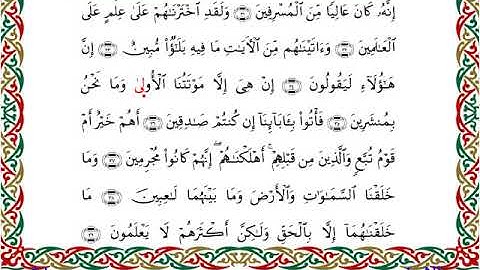 إِنَّهُۥ كَانَ عَالِيًا مِّنَ ٱلْمُسْرِفِينَ ۝٣١ وَلَقَدِ ٱخْتَرْنَٰهُمْ عَلَىٰ عِلْمٍ عَلَى
ٱلْعَٰلَمِينَ ۝٣٢ وَءَاتَيْنَٰهُم مِّنَ ٱلْءَايَٰتِ مَا فِيهِ بَلَٰٓؤٌا۟ مُّبِينٌ ۝٣٣ إِنَّ
هَٰٓؤُلَآءِ لَيَقُولُونَ ۝٣٤ إِنْ هِىَ إِلَّا مَوْتَتُنَا ٱلْأُولَىٰ وَمَا نَحْنُ
بِمُنشَرِينَ ۝٣٥ فَأْتُوا۟ بِـَٔابَآئِنَآ إِن كُنتُمْ صَٰدِقِينَ ۝٣٦ أَهُمْ خَيْرٌ أَمْ
قَوْمُ تُبَّعٍ وَٱلَّذِينَ مِن قَبْلِهِمْ ۚ أَهْلَكْنَٰهُمْ ۖ إِنَّهُمْ كَانُوا۟ مُجْرِمِينَ ۝٣٧ وَمَا
خَلَقْنَا ٱلسَّمَٰوَٰتِ وَٱلْأَرْضَ وَمَا بَيْنَهُمَا لَٰعِبِينَ ۝٣٨ مَا
خَلَقْنَٰهُمَآ إِلَّا بِٱلْحَقِّ وَلَٰكِنَّ أَكْثَرَهُمْ لَا يَعْلَمُونَ ۝٣٩